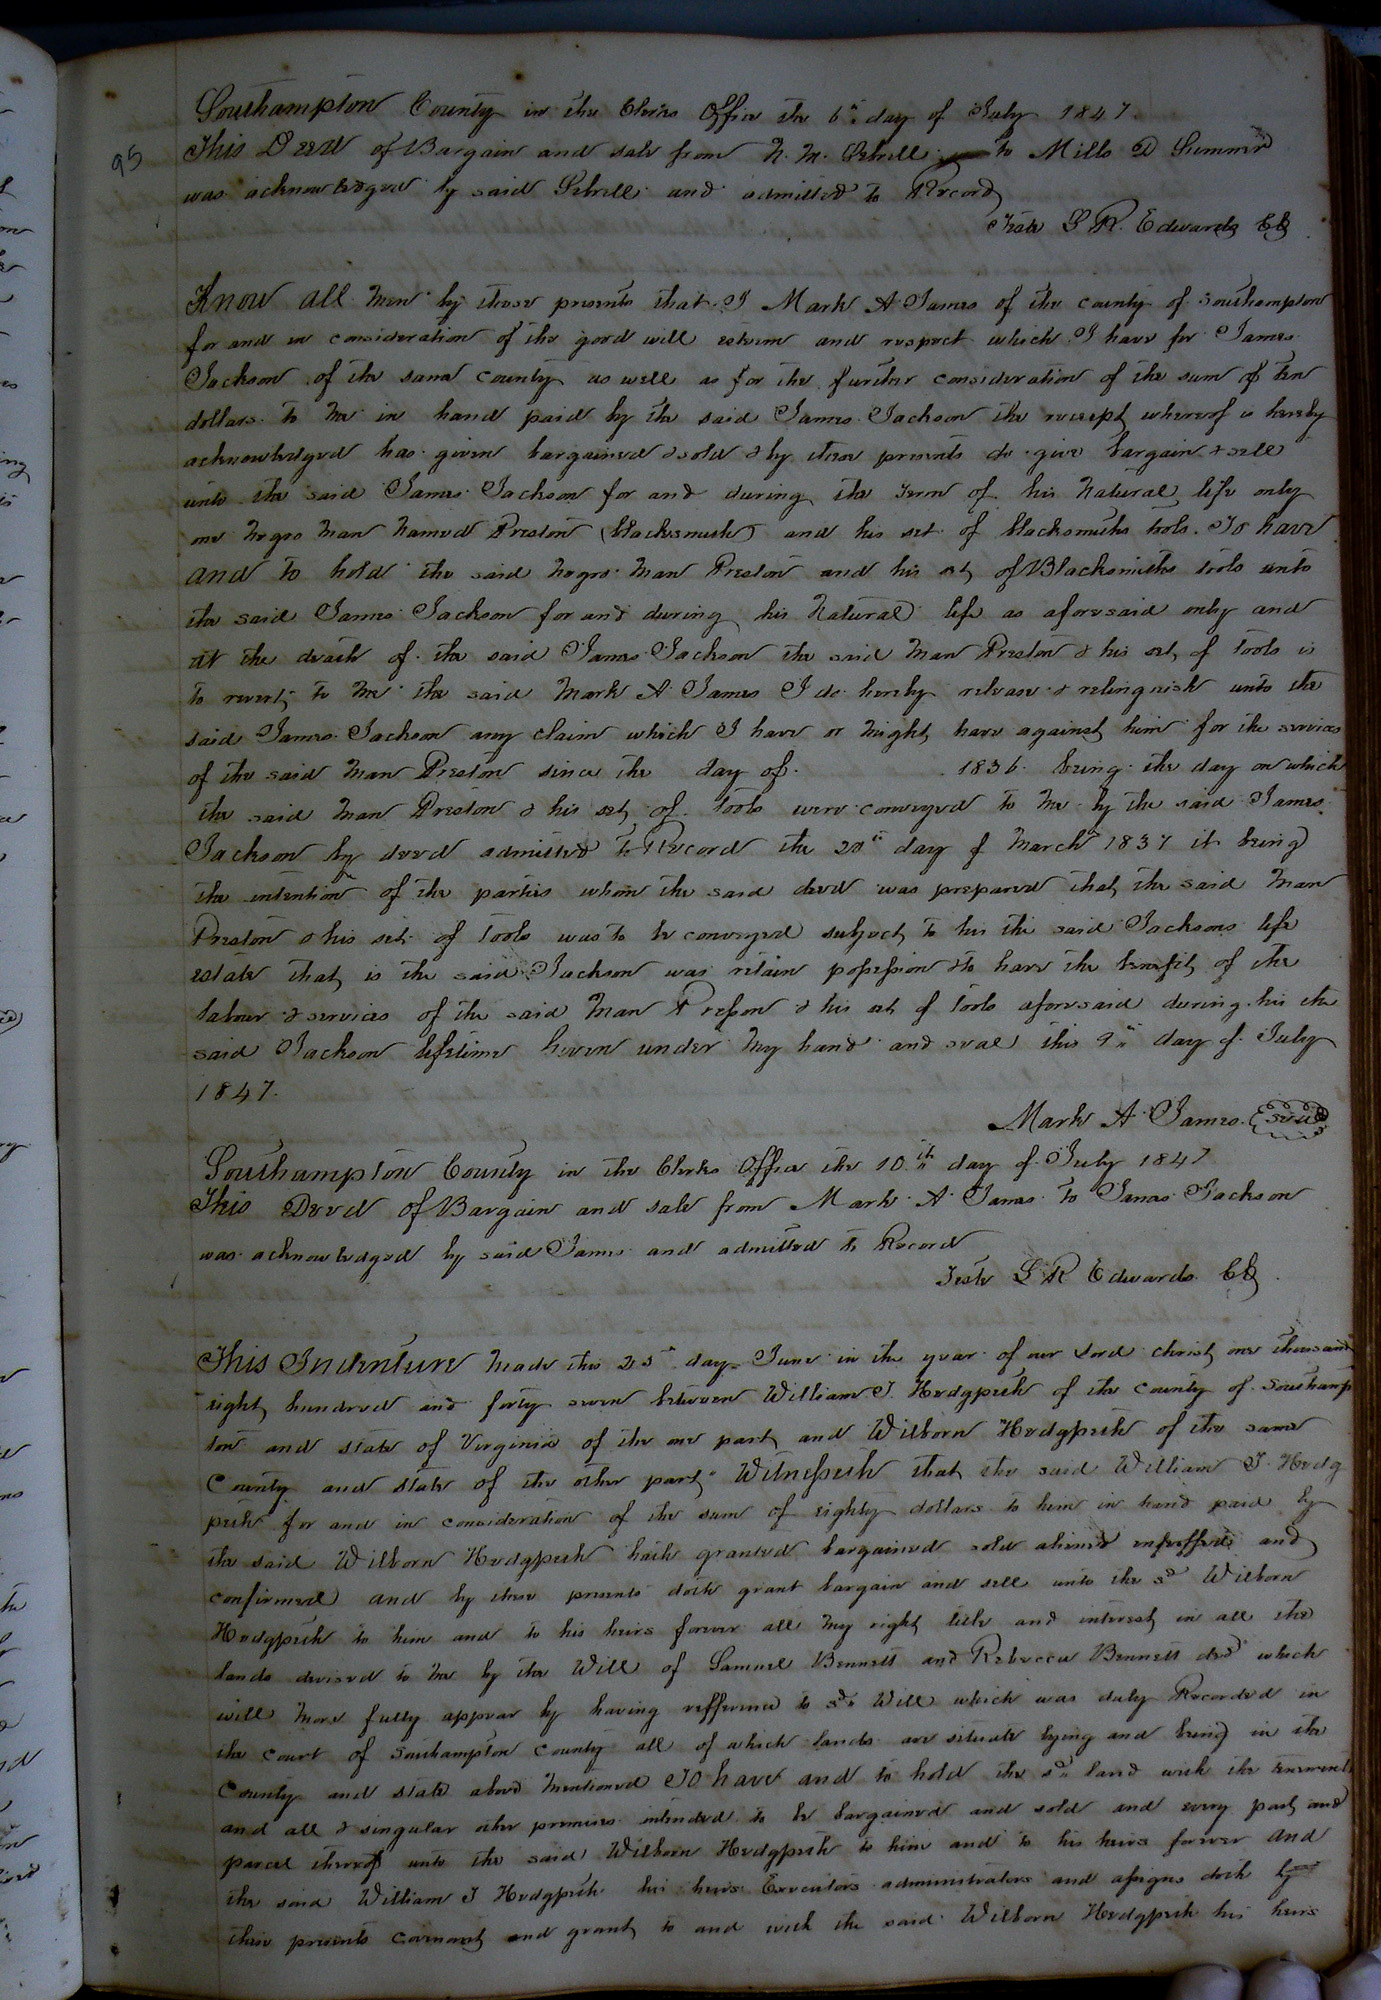 95
Southampton County in the Clerks Office the 6th day of July 1847.
This Deed of Bargain and sale from N. M. Sebrell to Mills D Summer
was acknowledged by said Sebrell and admitted to Record
Teste L R. Edwards CC
Know all men by these presents that I Mark A James of the county of Southampton
for and in consideration of the good will esteem and respect which I have for James
Jackson of the same county as well as for the further consideration of the sum of ten
dollars to me in hand paid by the said James Jackson the receipt whereof is hereby
acknowledged has given bargained & sold & by these presents do give bargain & sell
unto the said James Jackson for and during the term of his natural life only
one negro man named Preston (blacksmith) and his set of blacksmiths tools. To have
and to hold the said negro man Preston and his set of Blacksmiths tools unto
the said James Jackson for and during his natural life as aforesaid only and
at the death of the said James Jackson the said man Preston & his set of tools is
to revert to me the said Mark A James I do hereby release & relinquish unto the
said James Jackson any claim which I have or might have against him for the services
of the said man Preston since the day of 1836 being the day on which
the said man Preston & his set of tools were conveyed to me by the said James
Jackson by deed admitted to Record the 20th day of March 1837 it being
the intention of the parties whom the said deed was prepared that the said man
Preston & his set of tools was to be conveyed subject to his the said Jacksons life
estate that is the said Jackson was retain possession & to have the benefit of the
labour & services of the said man Preston & his set of tools aforesaid during his the
said Jackson lifetime Given under my hand and seal this 9th day of July
1847.
Mark A James seal
Southampton County in the Clerks Office the 10th day of July 1847
This Deed of Bargain and sale from Mark A James to James Jackson
was acknowledged by said James and admitted to Record
Teste L R Edwards CC
This Indenture made this 25th day June in the year of our Lord christ one thousand
eight hundred and forty seven between William J. Hedgpeth of the county of Southamp
ton and state of Virginia of the one part and Wilborn Hedgpeth of the same
County and state of the other part Witnesseth that the said William J Hedg
peth for and in consideration of the sum of eighty dollars to him in hand paid by
the said Wilborn Hedgpeth hath granted bargained sold aliened enfeoffed and
confirmed and by these presents doth grant bargain and sell unto the sd Wilborn
Hedgpeth to him and to his heirs forever all my right title and interest in all the
lands devised to me by the Will of Samuel Bennett and Rebecca Bennett decd which
will more fully appear by having refference to sd Will which was duly Recorded in
the court of Southampton County all of which lands are situate lying and being in the
County and state above mentioned To have and to hold the sd land with the tenements
and all & singular other premises intended to be bargained and sold and every part and
parcel thereof unto the said Wilborn Hedgpeth to him and to his heirs forever and
the said William J Hedgpeth his heirs Executors administrators and assigns doth by
these presents covenant and grant to and with the said Wilborn Hedgpeth his heirs